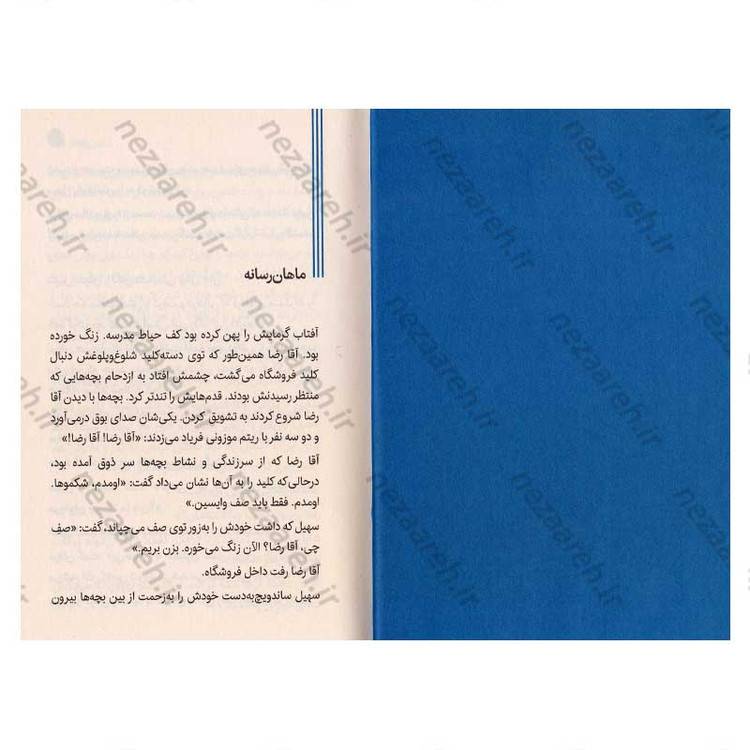 ماهان‌رسانه
آفتاب گرمایش را پهن کرده بود کف حیاط مدرسه. زنگ خورده
بود. آقا رضا همین‌طور که توی دسته‌کلید شلوغ‌وپلوغش دنبال
کلید فروشگاه می‌گشت، چشمش افتاد به ازدحام بچه‌هایی که
منتظر رسیدنش بودند. قدم‌هایش را تندتر کرد. بچه‌ها با دیدن آقا
رضا شروع کردند به تشویق کردن. یکی‌شان صدای بوق درمی‌آورد
و دو سه نفر با ریتم موزونی فریاد می‌زدند: «آقا رضا! آقا رضا!»
آقا رضا که از سرزندگی و نشاط بچه‌ها سر ذوق آمده بود،
درحالی‌که کلید را به آن‌ها نشان می‌داد گفت: «اومدم، شکموها.
اومدم. فقط باید صف وایسین.»
سهیل که داشت خودش را به‌زور توی صف می‌چپاند، گفت: «صفِ
چی، آقا رضا؟ الآن زنگ می‌خوره. بزن بریم.»
آقا رضا رفت داخل فروشگاه.
سهیل ساندویچ‌به‌دست خودش را به‌زحمت از بین بچه‌ها بیرون
nezaareh.ir
nezaareh.ir
nezaareh.ir
nezaareh.ir
nezaareh.ir
nezaareh.ir
nezaareh.ir
nezaareh.ir
nezaareh.ir